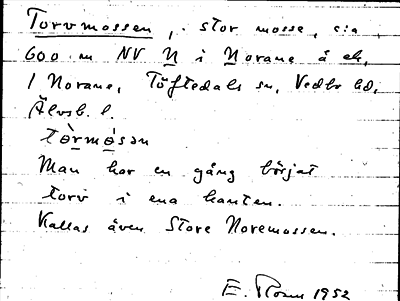 Torvmossen, stor mosse, c:a
600 m NV N i Norane å ek.
1 Norane, Töftedals sn, Vedbo hd,
Älvsb. l.
tòrmósən
Man har en gång börjat
torv i ena kanten.
Kallas även Store Noremossen.
E. Rosen 1952